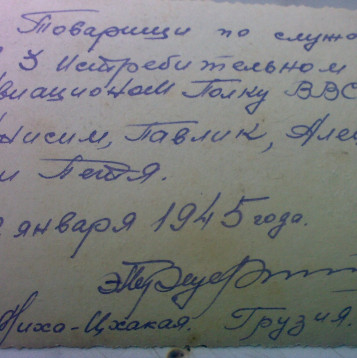 Товарищи по служ
3 Истребительном
виационом Полку ВВС
нисим, Павлик, Але
и Петя.
января 1945 года.
Михо-Цхакая. Грузия.